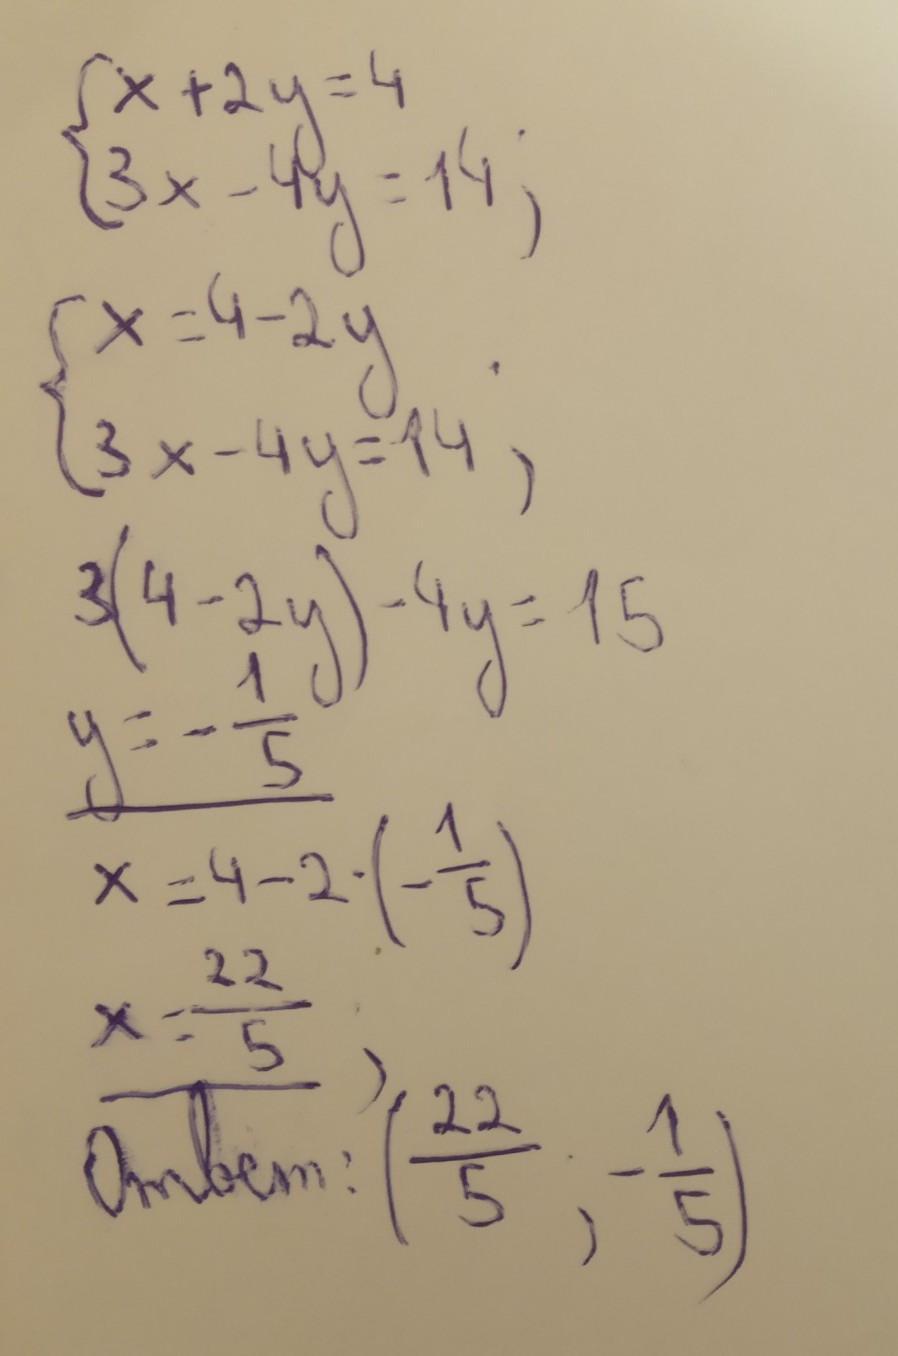 {x + 2y = 4
{3x - 4y = 14;
{x = 4 - 2y
{3x - 4y = 14;
3(4 - 2y) - 4y = 15
y = -1/5
x = 4 - 2·(-1/5)
x = 22/5;
Ответ: (22/5; -1/5)